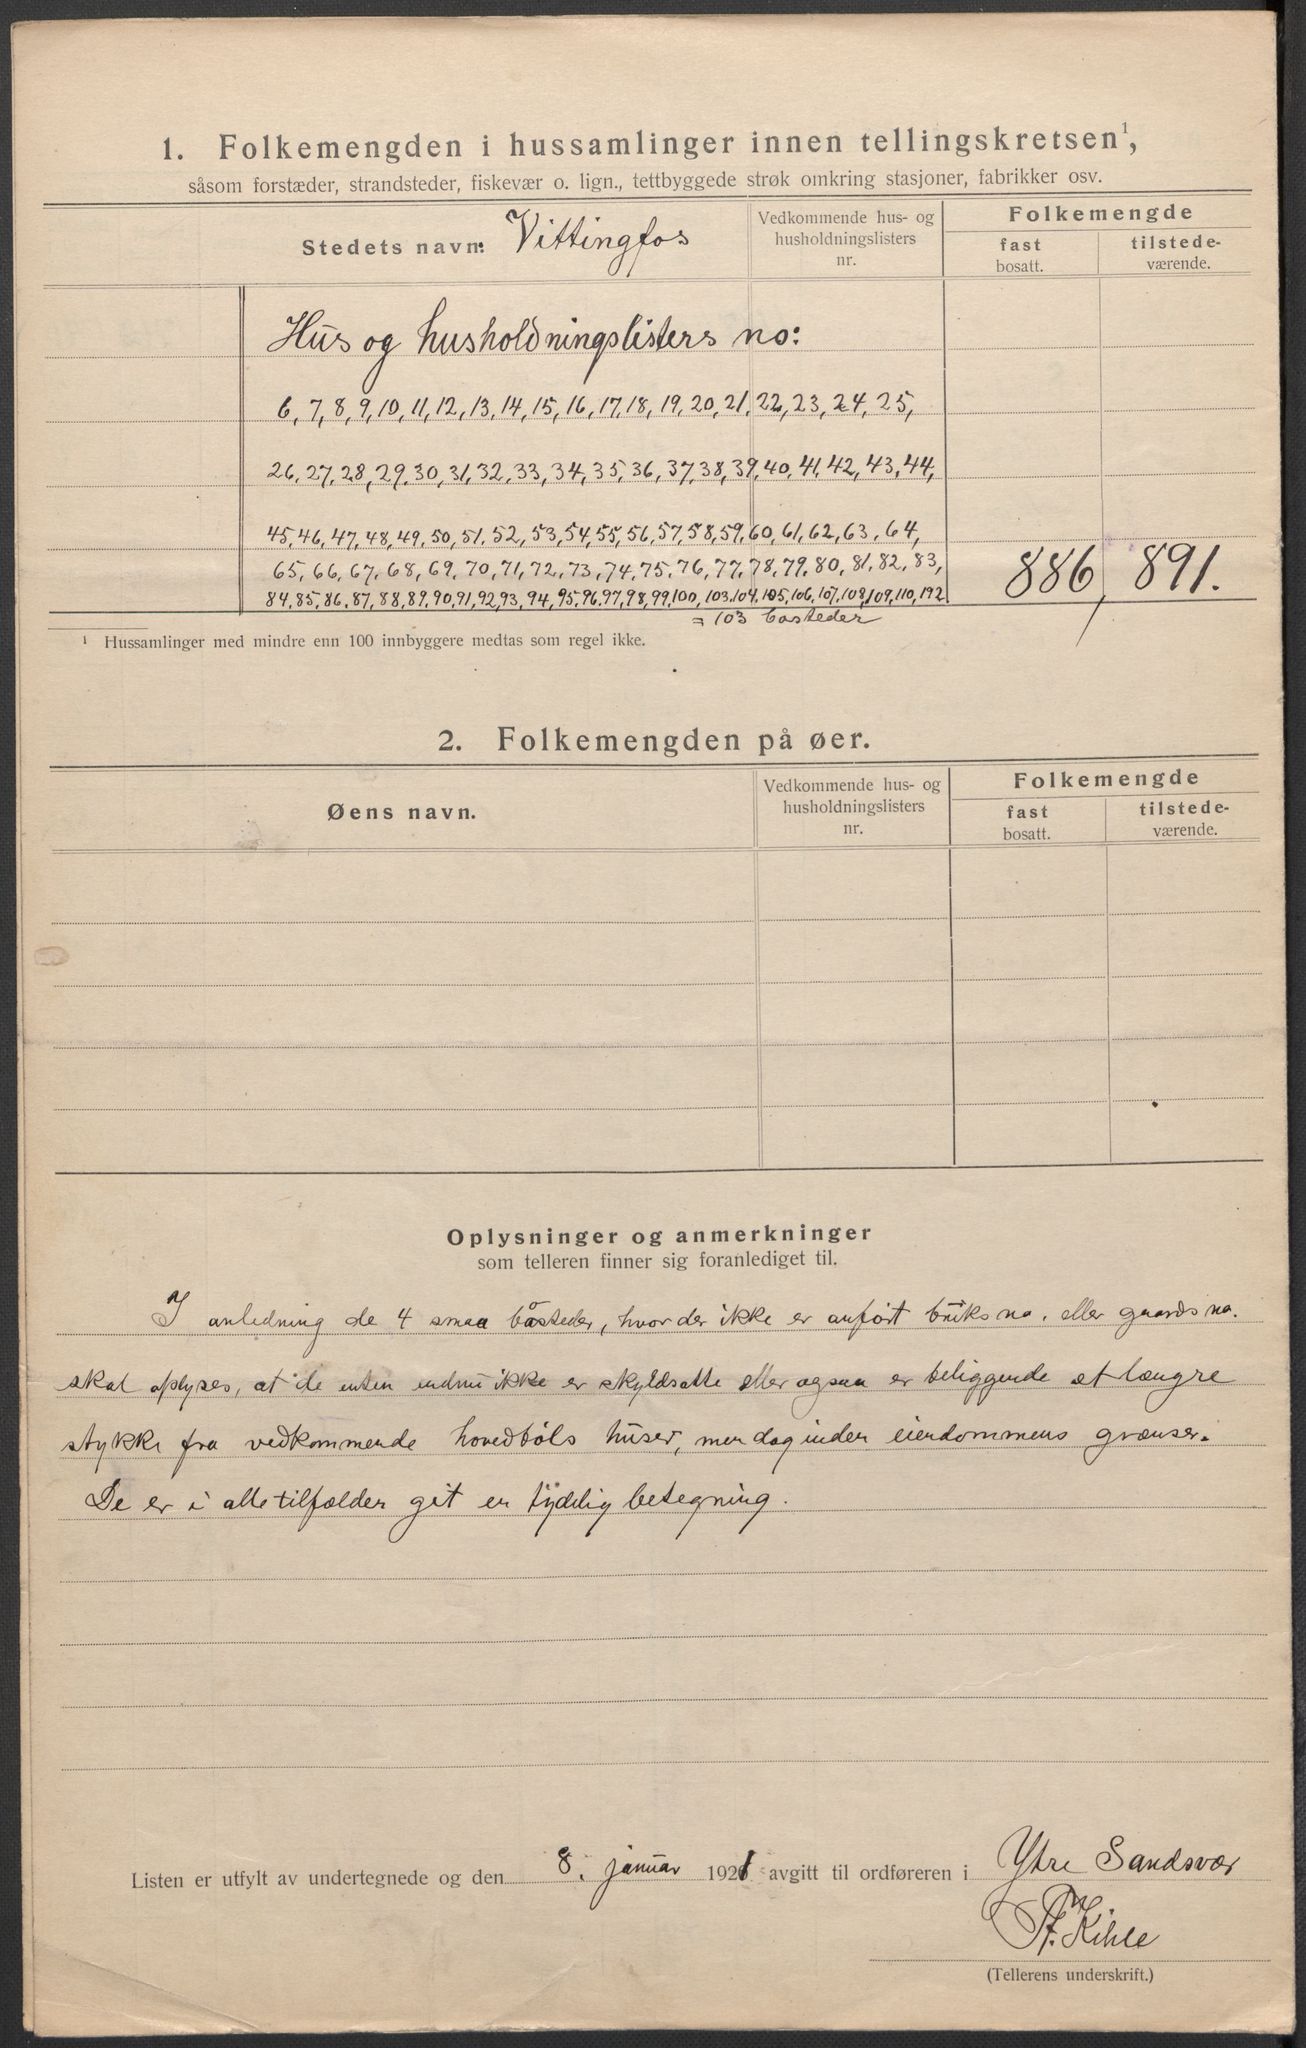 1. Folkemengden i hussamlinger innen tellingskretsen¹,
såsom forstæder, strandsteder, fiskevær o. lign., tettbyggede strøk omkring stasjoner, fabrikker osv.
Stedets navn: Vittingfos
Vedkommende hus- og
husholdningslisters
nr.
Folkemengde
fast
bosatt.
tilstede-
værende.
Hus og husholdningslisters no:
6, 7, 8, 9, 10, 11, 12, 13, 14, 15, 16, 17, 18, 19, 20, 21, 22, 23, 24, 25,
26, 27, 28, 29, 30, 31, 32, 33, 34, 35, 36, 37, 38, 39, 40, 41, 42, 43, 44,
45, 46, 47, 48, 49, 50, 51, 52, 53, 54, 55, 56, 57, 58, 59, 60, 61, 62, 63, 64,
65, 66, 67, 68, 69, 70, 71, 72, 73, 74, 75, 76, 77, 78, 79, 80, 81, 82, 83,
84, 85, 86, 87, 88, 89, 90, 91, 92, 93, 94, 95, 96, 97, 98, 99, 100, 103, 104, 105, 106, 107, 108, 109, 110, 192
= 103 bosteder
886, 891.
¹ Hussamlinger med mindre enn 100 innbyggere medtas som regel ikke.
2. Folkemengden på øer.
Øens navn.
Vedkommende hus- og
husholdningslisters
nr.
Folkemengde
fast
bosatt.
tilstede-
værende.
Oplysninger og anmerkninger
som telleren finner sig foranlediget til.
I anledning de 4 smaa bosteder, hvor der ikke er anført bruks no. eller gaards no.
skal oplyses, at de enten endnu ikke er skyldsatte eller ogsaa er beliggende et længre
stykke fra vedkommende hovedbøls huser, men dog inden eiendommens grænser.
De er i alle tilfælder git en tydelig betegning.
Listen er utfylt av undertegnede og den 8. januar 1921 avgitt til ordføreren i Ytre Sandsvær
Kihle
(Tellerens underskrift.)